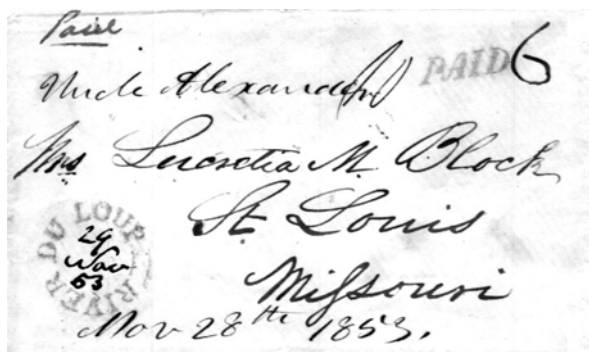 Paid
PAID 6
Uncle Alexander
Mrs Lucretia M. Block
St. Louis
Missouri
RIVER DU LOUP
29
Nov
53
Nov 28th 1853.